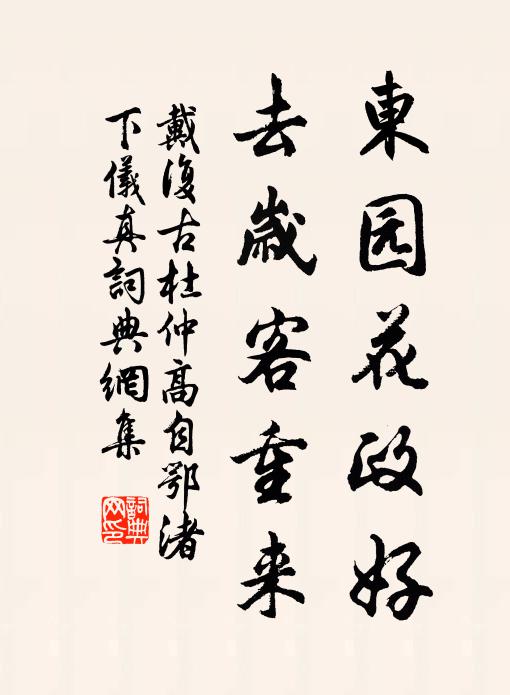 東园花政好
去歲客重来
戴復古杜仲高自鄂渚
下儀真詞典網集
詞典
网印